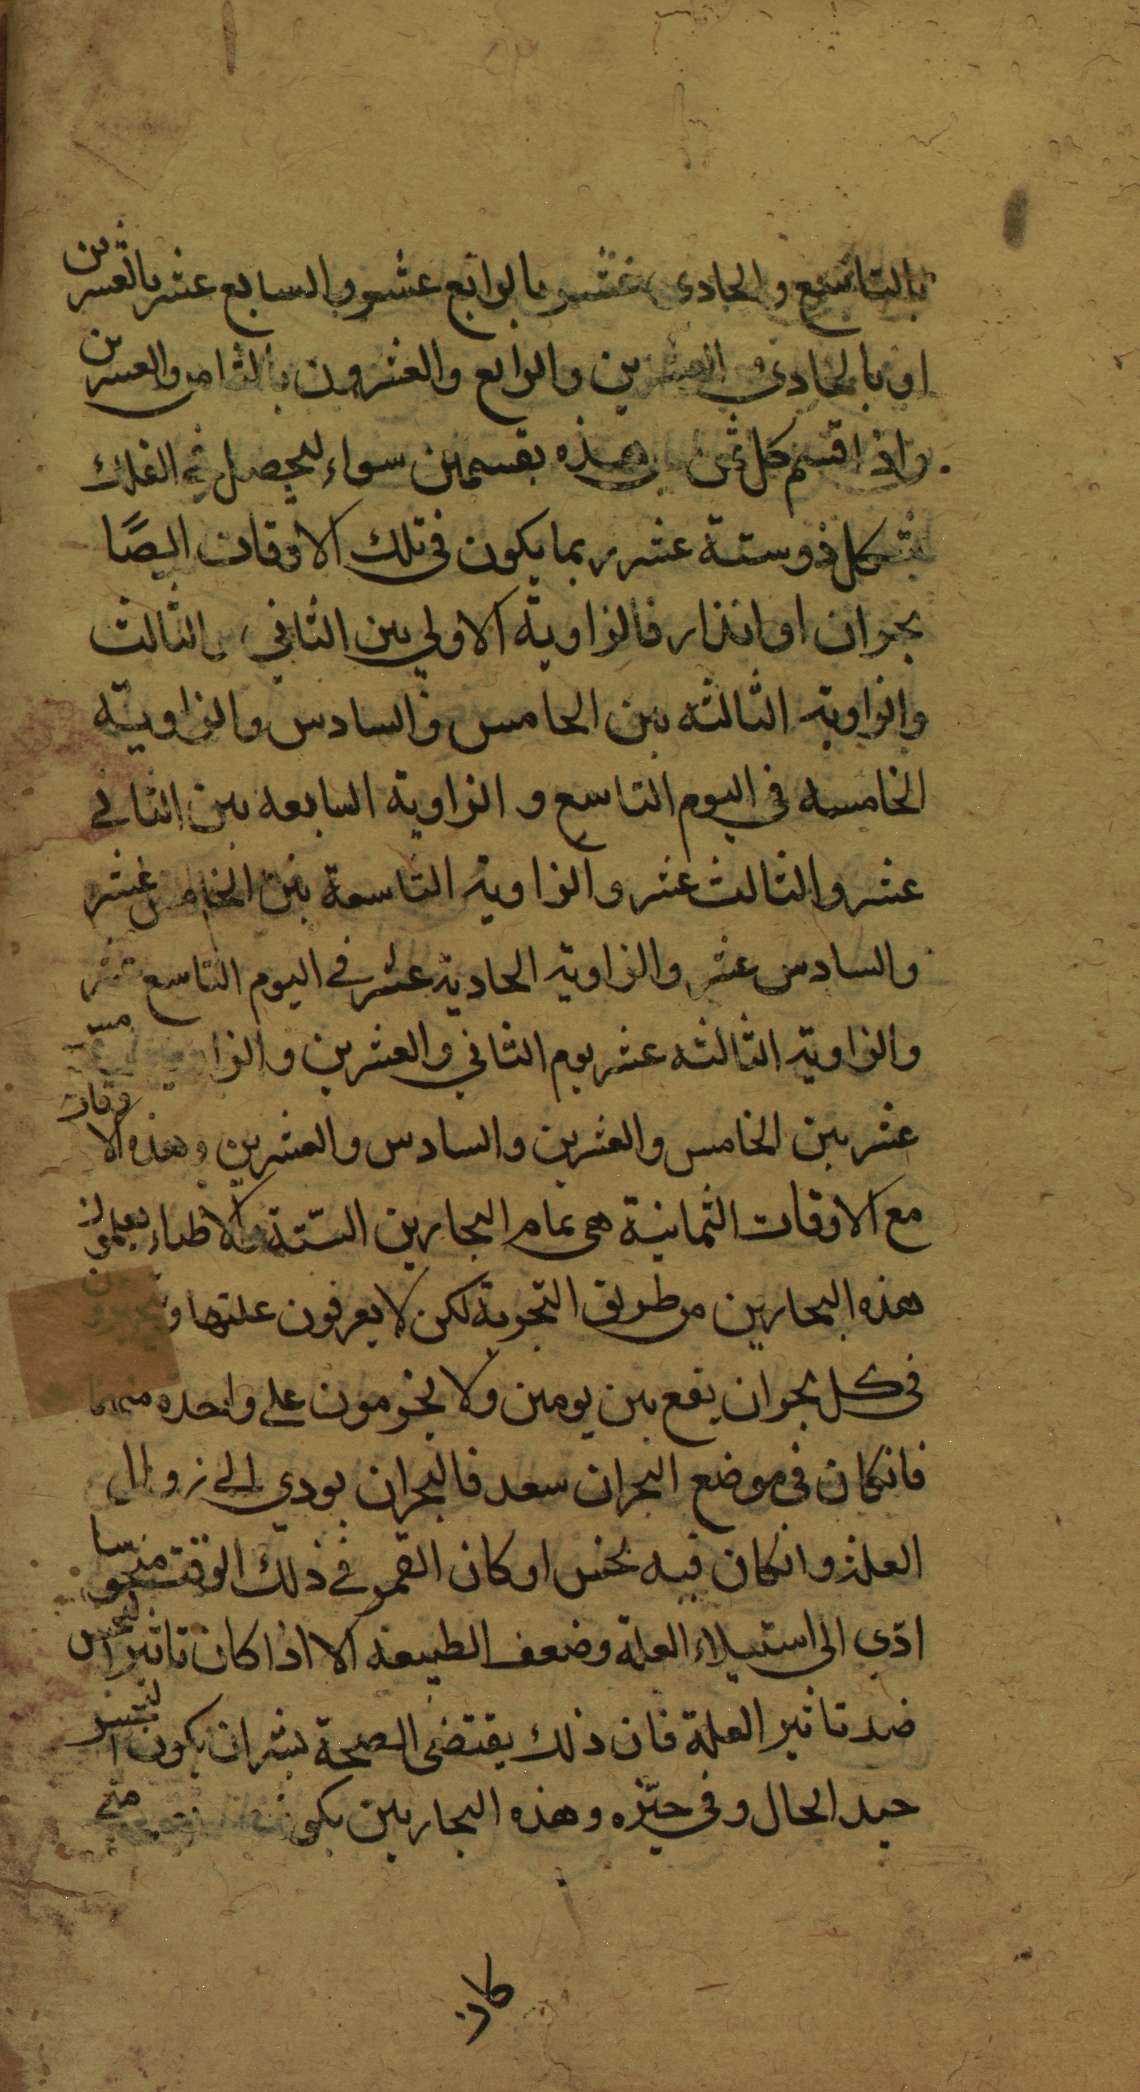 بالتاسع والحادي عشر بالرابع عشر وبالسابع عشر بالعشرين
او بالحادي والعشرين والرابع والعشرون بالثامن والعشرين
واذا قسم كل ثمن هذه بقسمين سواء ليحصل في الفلك
شكل ذو ستة عشر ربما يكون في تلك الاوقات ايضًا
بحران او انذار فالزاوية الاولي بين الثاني والثالث
والزاوية الثالثه بين الخامس والسادس والزاوية
الخامسه في اليوم التاسع والزاوية السابعه بين الثاني
عشر والثالث عشر والزاوية التاسعة بين الخامس عشر
والسادس عشر والزاوية الحادية عشر في اليوم التاسع عشر
والزاوية الثالثه عشر يوم الثاني والعشرين
عشر بين الخامس والعشرين والسادس والعشرين وهذه الاوقات
مع الاوقات الثمانية هي تمام البحارين الستة الاطباء يعلمون
هذه البحارين من طريق التجربة لكن لا يعرفون علتها
في كل بحران يقع بين يومين ولا يجزمون على واحده منهما
فانكان في موضع البحران سعد فالبحران يودي الى زوال
العلة وانكان فيه نحس او كان القمر في ذلك الوقت منحوسا
ادّي الى استيلاء العلة وضعف الطبيعة الا اذا كان تاثير النحس
ضد تاثير العلة فان ذلك يقتضى الصحة بشران يكون
جيد الحال وفي حيّزه وهذه البحارين يكون
كان